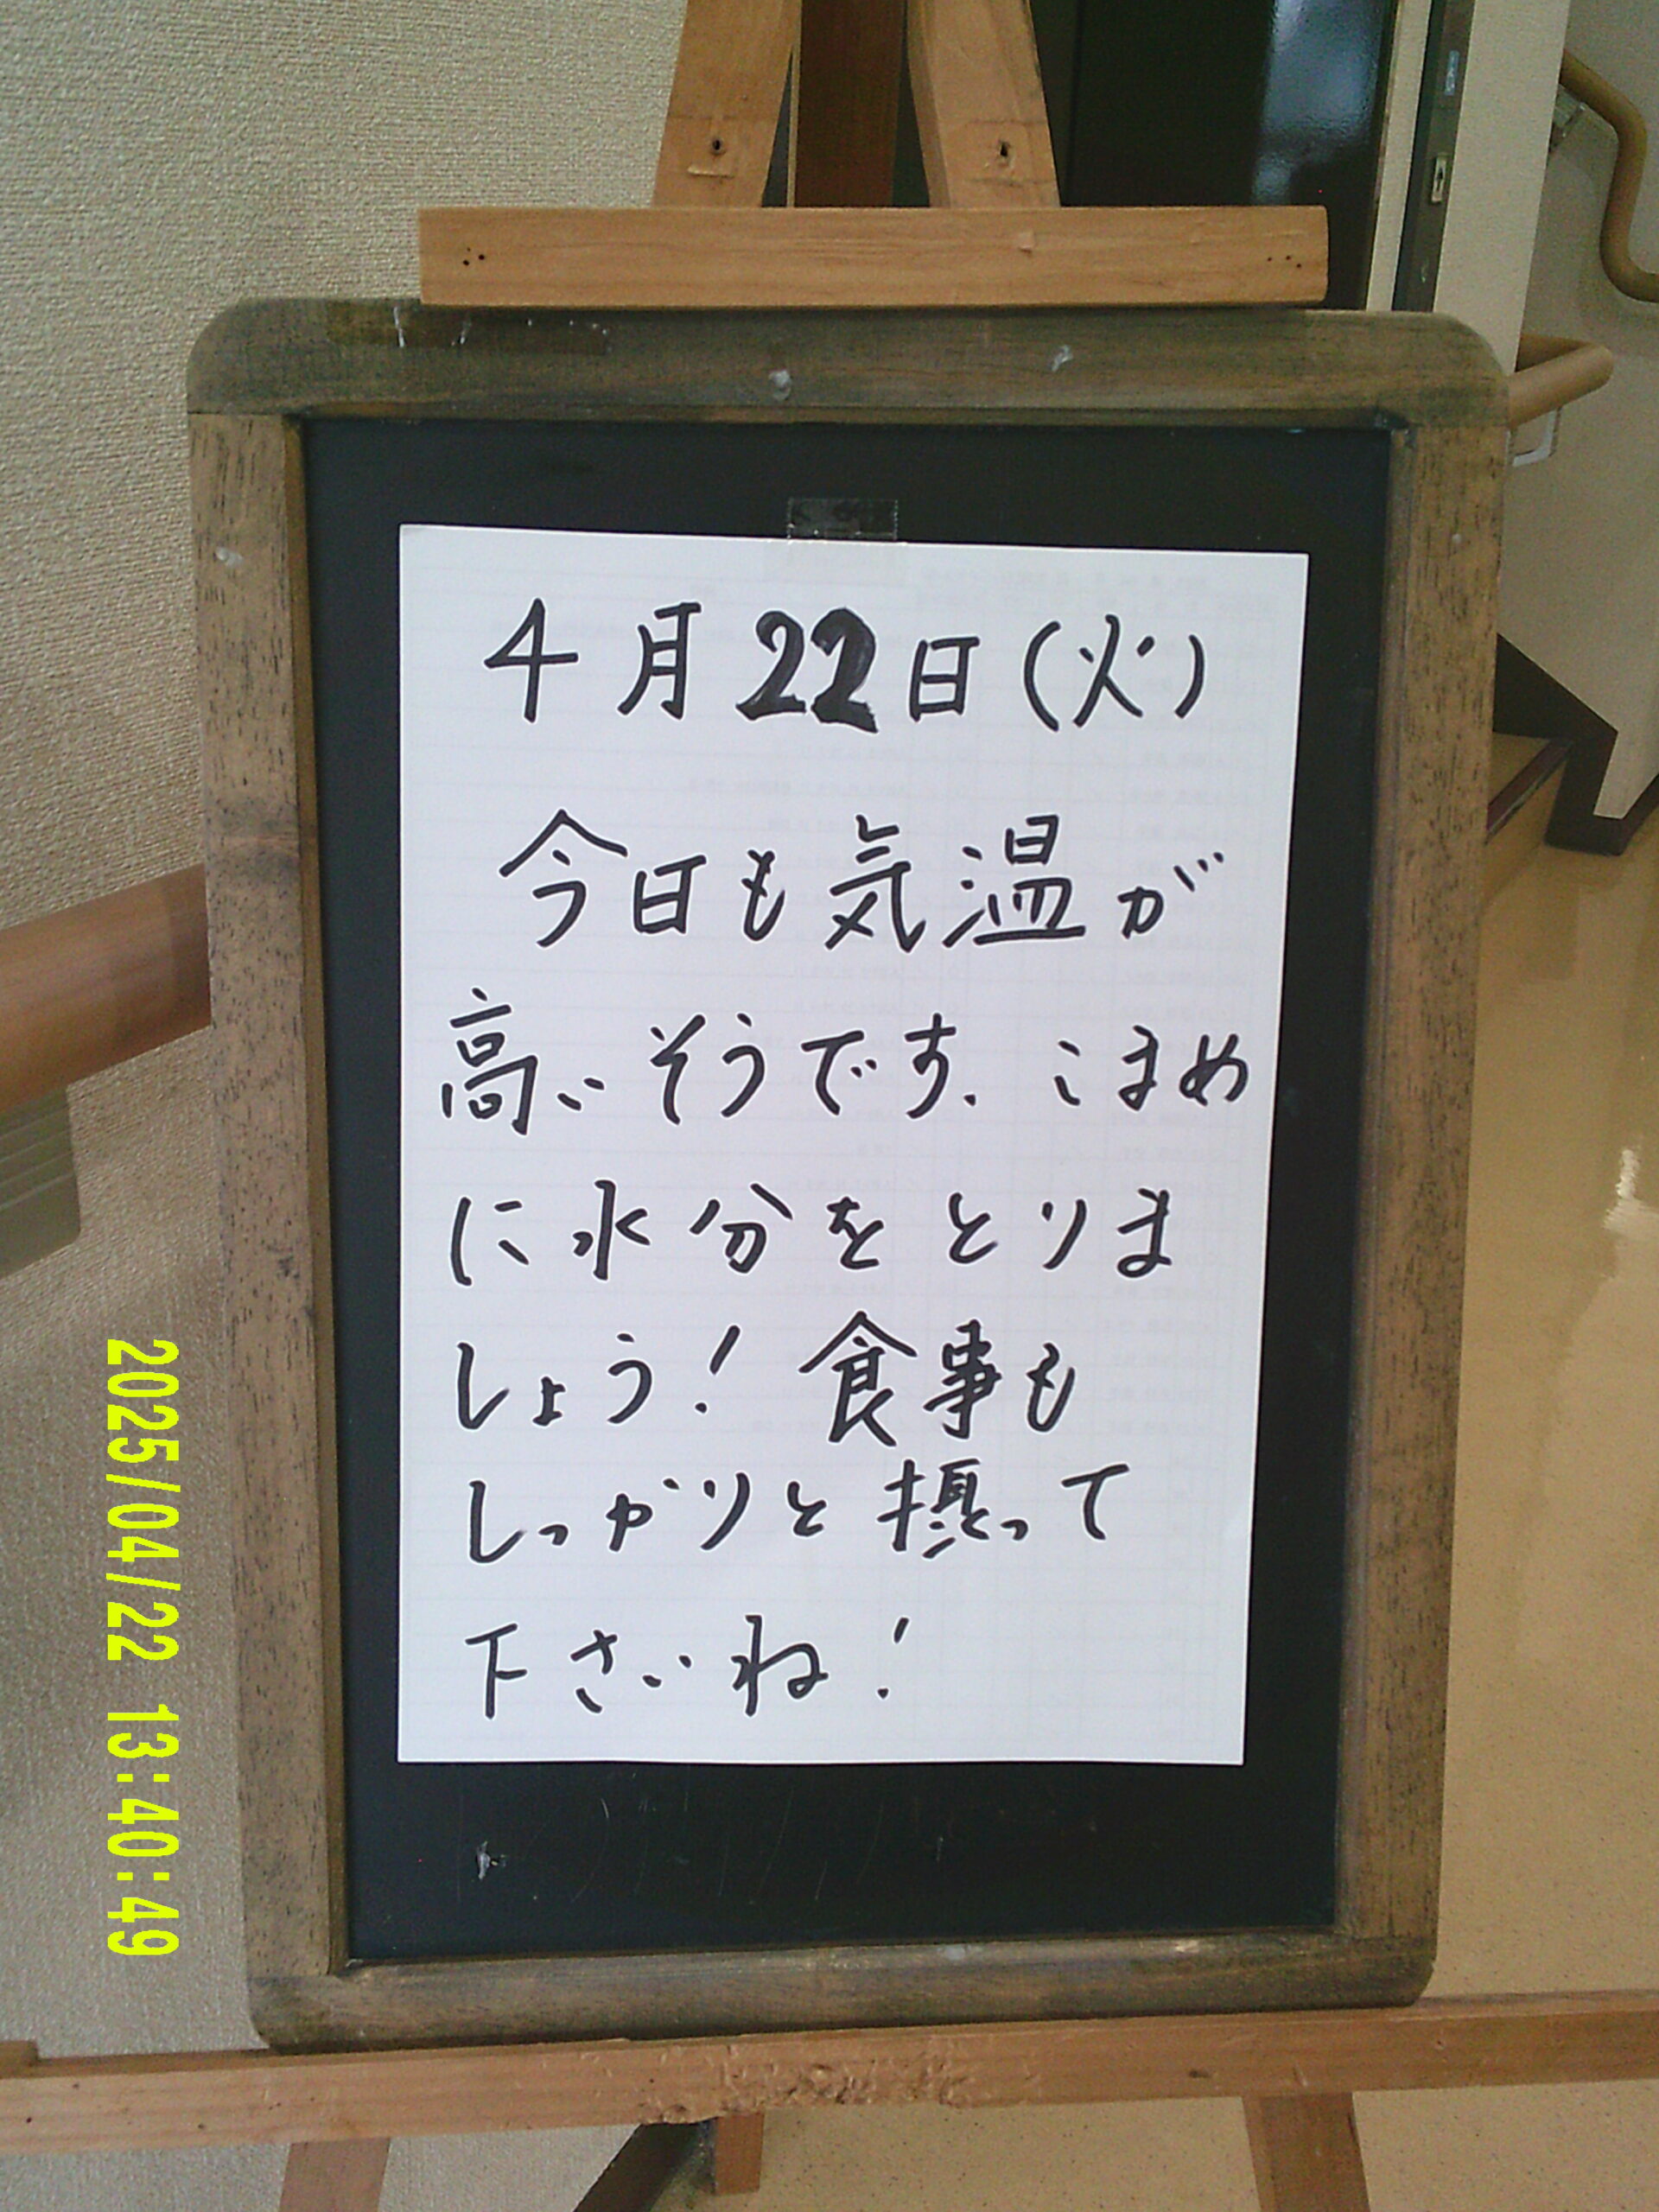 4月22日(火)
今日も気温が
高いそうです。こまめ
に水分をとりま
しょう!食事も
しっかりと摂って
下さいね!
2025/04/22 13:40:49